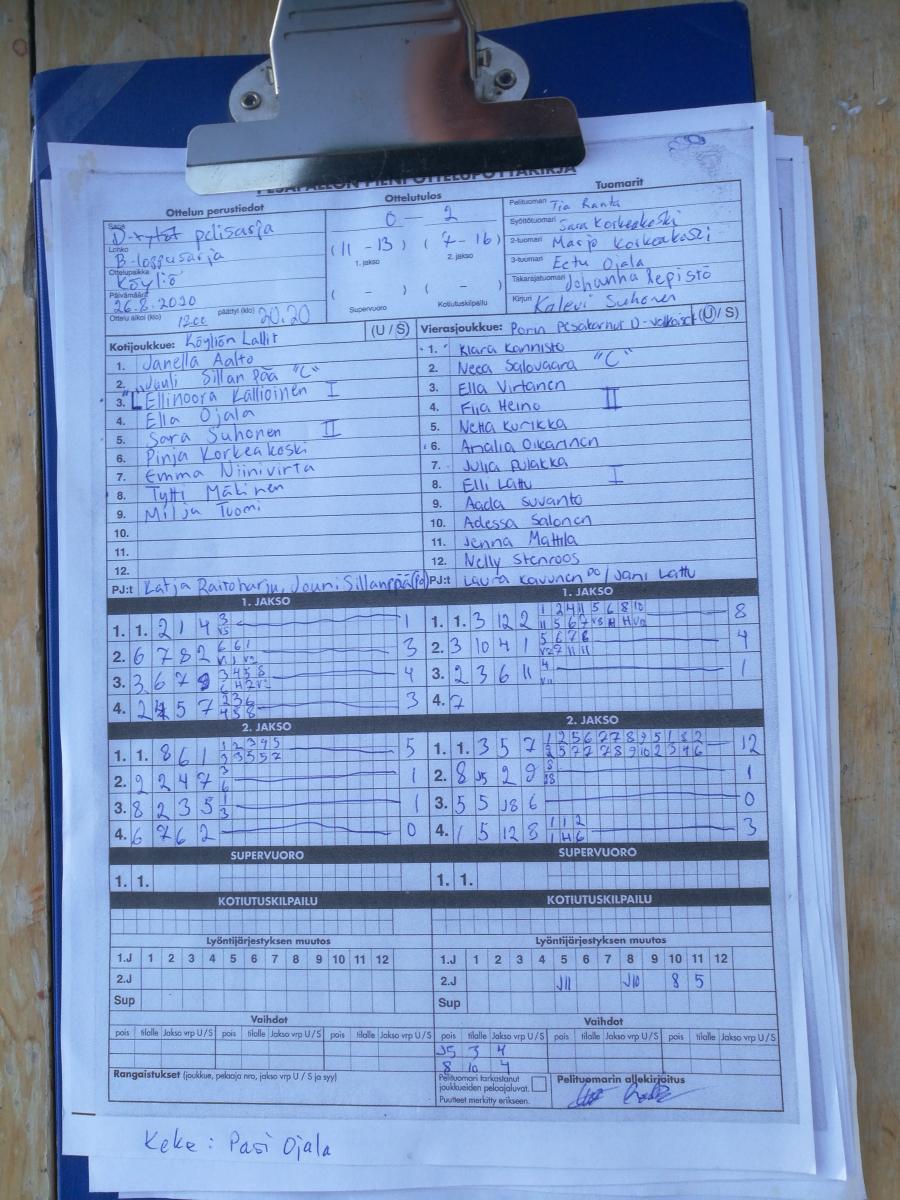 PESÄPALLON PIENI OTTELUPÖYTÄKIRJA
Ottelun perustiedot
Sarja D-tytöt pelisarja
Lohko B-loppusarja
Ottelupaikka Köyliö
Päivämäärä 26.8.2020
Ottelu alkoi (klo) päättyi (klo) 20.20
Ottelutulos
0 - 2
(11 - 13) (7 - 16)
1. jakso 2. jakso
( - ) ( - )
Supervuoro Kotiutuskilpailu
Tuomarit
Pelituomari Tia Ranta
Syöttötuomari Sara Korkeakoski
2-tuomari Marjo Korkeakoski
3-tuomari Eetu Ojala
Takarajatuomari Johanna Lepistö
Kirjuri Kalevi Suhonen
Kotijoukkue: Köyliön Lallit (U / S)
1. Janella Aalto
2. Jouli Sillanpää "C"
3. Ellinoora Kallioinen I
4. Ella Ojala
5. Sara Suhonen II
6. Pinja Korkeakoski
7. Emma Niinivirta
8. Tytti Mäkinen
9. Milja Tuomi
10.
11.
12.
PJ:t Katja Raitoharju, Jouni Sillanpää (po)
Vierasjoukkue: Porin Pesäkarhut D-valkoiset (U / S)
1. Klara Kannisto
2. Neea Salovaara "C"
3. Ella Virtanen
4. Fiia Heino II
5. Netta Kurikka
6. Analia Oikarinen
7. Julia Pulakka
8. Elli Lattu I
9. Aada Suvanto
10. Adessa Salonen
11. Jenna Mattila
12. Nelly Stenroos
PJ:t Laura Kavunen po / Jani Lattu
1. JAKSO
1. 1. 2 1 4 3 1
2. 6 7 8 2 6 6 1 3
3. 3 6 7 9 3 4 5 8 4
4. 2 4 5 7 2 3 6 3
4 5 8
1. JAKSO
1. 1. 3 12 2 1 2 4 11 5 6 8 10 8
2. 3 10 4 1 5 6 7 8 4
3. 2 3 6 11 4 1
4. 7
2. JAKSO
1. 1. 8 6 1 1 2 3 4 5 5
2 3 5 5 7
2. 9 2 4 7 3 1
6
3. 8 2 3 5 1 1
3
4. 6 7 6 2 0
2. JAKSO
1. 1. 3 5 7 1 2 5 6 7 7 8 9 5 1 8 2 12
2 5 7 7 7 8 9 10 2 3 4 6
2. 8 J5 2 9 8 1
J8
3. 5 5 J8 6 0
4. 1 5 12 8 1 1 2 3
1 4 6
SUPERVUORO
1. 1.
SUPERVUORO
1. 1.
KOTIUTUSKILPAILU
KOTIUTUSKILPAILU
Lyöntijärjestyksen muutos
1.J 1 2 3 4 5 6 7 8 9 10 11 12
2.J
Sup
Lyöntijärjestyksen muutos
1.J 1 2 3 4 5 6 7 8 9 10 11 12
2.J J11 J10 8 5
Sup
Vaihdot
pois tilalle Jakso vrp U / S pois tilalle Jakso vrp U / S pois tilalle Jakso vrp U / S
Vaihdot
pois tilalle Jakso vrp U / S pois tilalle Jakso vrp U / S pois tilalle Jakso vrp U / S
J5 3 4
8 10 4
Rangaistukset (joukkue, pelaaja nro, jakso vrp U / S ja syy)
Pelituomari tarkastanut
joukkueiden pelaajaluvat.
Puutteet merkitty erikseen.
Pelituomarin allekirjoitus
Keke: Pasi Ojala